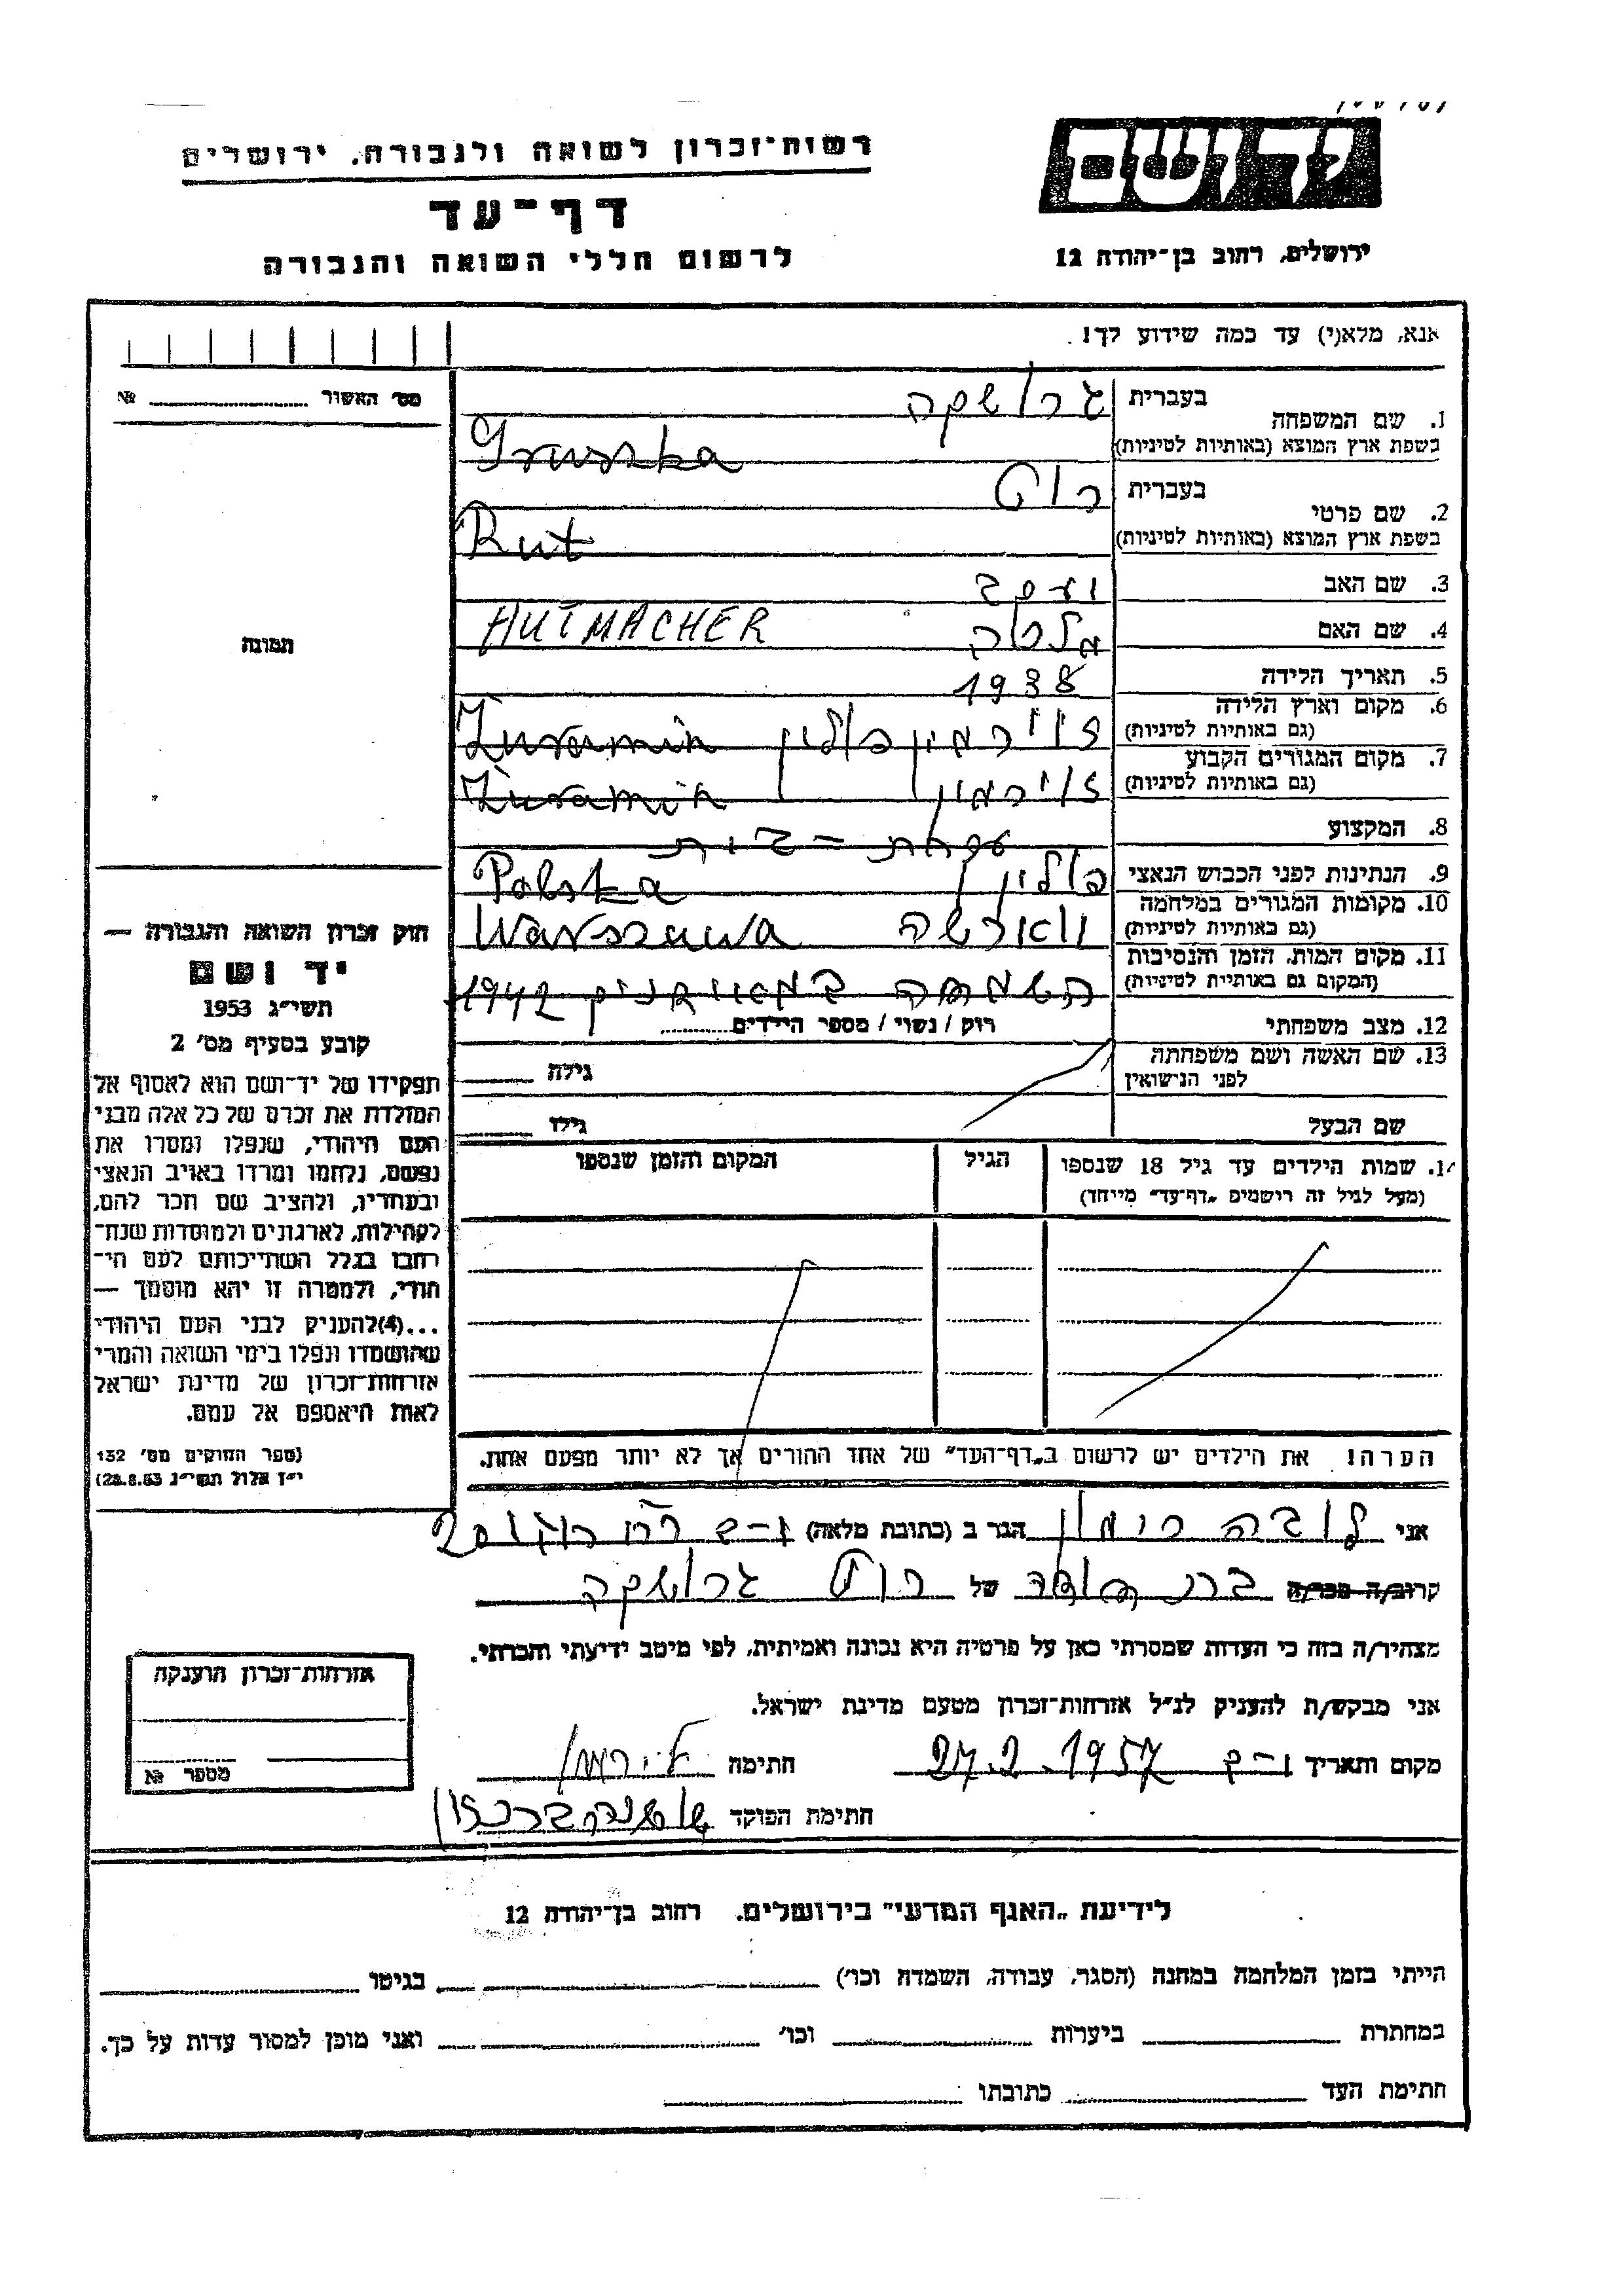 רשות־זכרון לשואה ולגבורה, ירושלים
דף־עד
לרשום חללי השואה והגבורה
יד ושם
ירושלים, רחוב בן־יהודה 12
אנא, מלא(י) עד כמה שידוע לך!
מס' האשור №
תמונה
חוק זכרון השואה והגבורה —
יד ושם
תשי״ג 1953
קובע בסעיף מס' 2
תפקידו של יד־ושם הוא לאסוף אל
המולדת את זכרם של כל אלה מבני
העם היהודי, שנפלו ומסרו את
נפשם, נלחמו ומרדו באויב הנאצי
ובעוזריו, ולהציב שם וזכר להם,
לקהילות, לארגונים ולמוסדות שנח־
רבו בגלל השתייכותם לעם הי־
הודי, ולמטרה זו יהא מוסמך —
...(4) להעניק לבני העם היהודי
שהושמדו ונפלו בימי השואה והמרי
אזרחות־זכרון של מדינת ישראל
לאות היאספם אל עמם.
(ספר החוקים מס' 132
י״ז אלול תשי״ג 28.8.53)
1. שם המשפחה בעברית גרושקה
בשפת ארץ המוצא (באותיות לטיניות) Gruszka
2. שם פרטי בעברית רוט
בשפת ארץ המוצא (באותיות לטיניות) Rut
3. שם האב
4. שם האם HUTMACHER
5. תאריך הלידה 1938
6. מקום וארץ הלידה (גם באותיות לטיניות) ז'ורמין פולין Żuramin
7. מקום המגורים הקבוע (גם באותיות לטיניות) ז'ורמין Żuramin
8. המקצוע
9. הנתינות לפני הכבוש הנאצי פולין Polska
10. מקומות המגורים במלחמה (גם באותיות לטיניות) ווארשה Warszawa
11. מקום המות, הזמן והנסיבות (המקום גם באותיות לטיניות) 1942
12. מצב משפחתי רוק / נשוי / מספר הילדים
13. שם האשה ושם משפחתה לפני הנישואין גילה
שם הבעל גילו
14. שמות הילדים עד גיל 18 שנספו הגיל המקום והזמן שנספו
(מעל לגיל זה רישמים „דף־עד״ מייחד)
הערה! את הילדים יש לרשום ב„דף־העד״ של אחד ההורים אך לא יותר מפעם אחת.
אני לובה רימון הגר ב (כתובת מלאה)
קרוב/ה מכר/ה של רוט גרושקה
מצהיר/ה בזה כי העדות שמסרתי כאן על פרטיה היא נכונה ואמיתית, לפי מיטב ידיעתי והכרתי.
אני מבקש/ת להעניק לנ״ל אזרחות־זכרון מטעם מדינת ישראל.
מקום ותאריך 27.2.1957 חתימה
חתימת הפוקד
אזרחות־זכרון הוענקה
מספר №
לידיעת „האגף המדעי״ בירושלים, רחוב בן־יהודה 12
הייתי בזמן המלחמה במחנה (הסגר, עבודה, השמדה וכו') בגיטו
במחתרת ביערות וכו' ואני מוכן למסור עדות על כך.
חתימת העד כתובתו